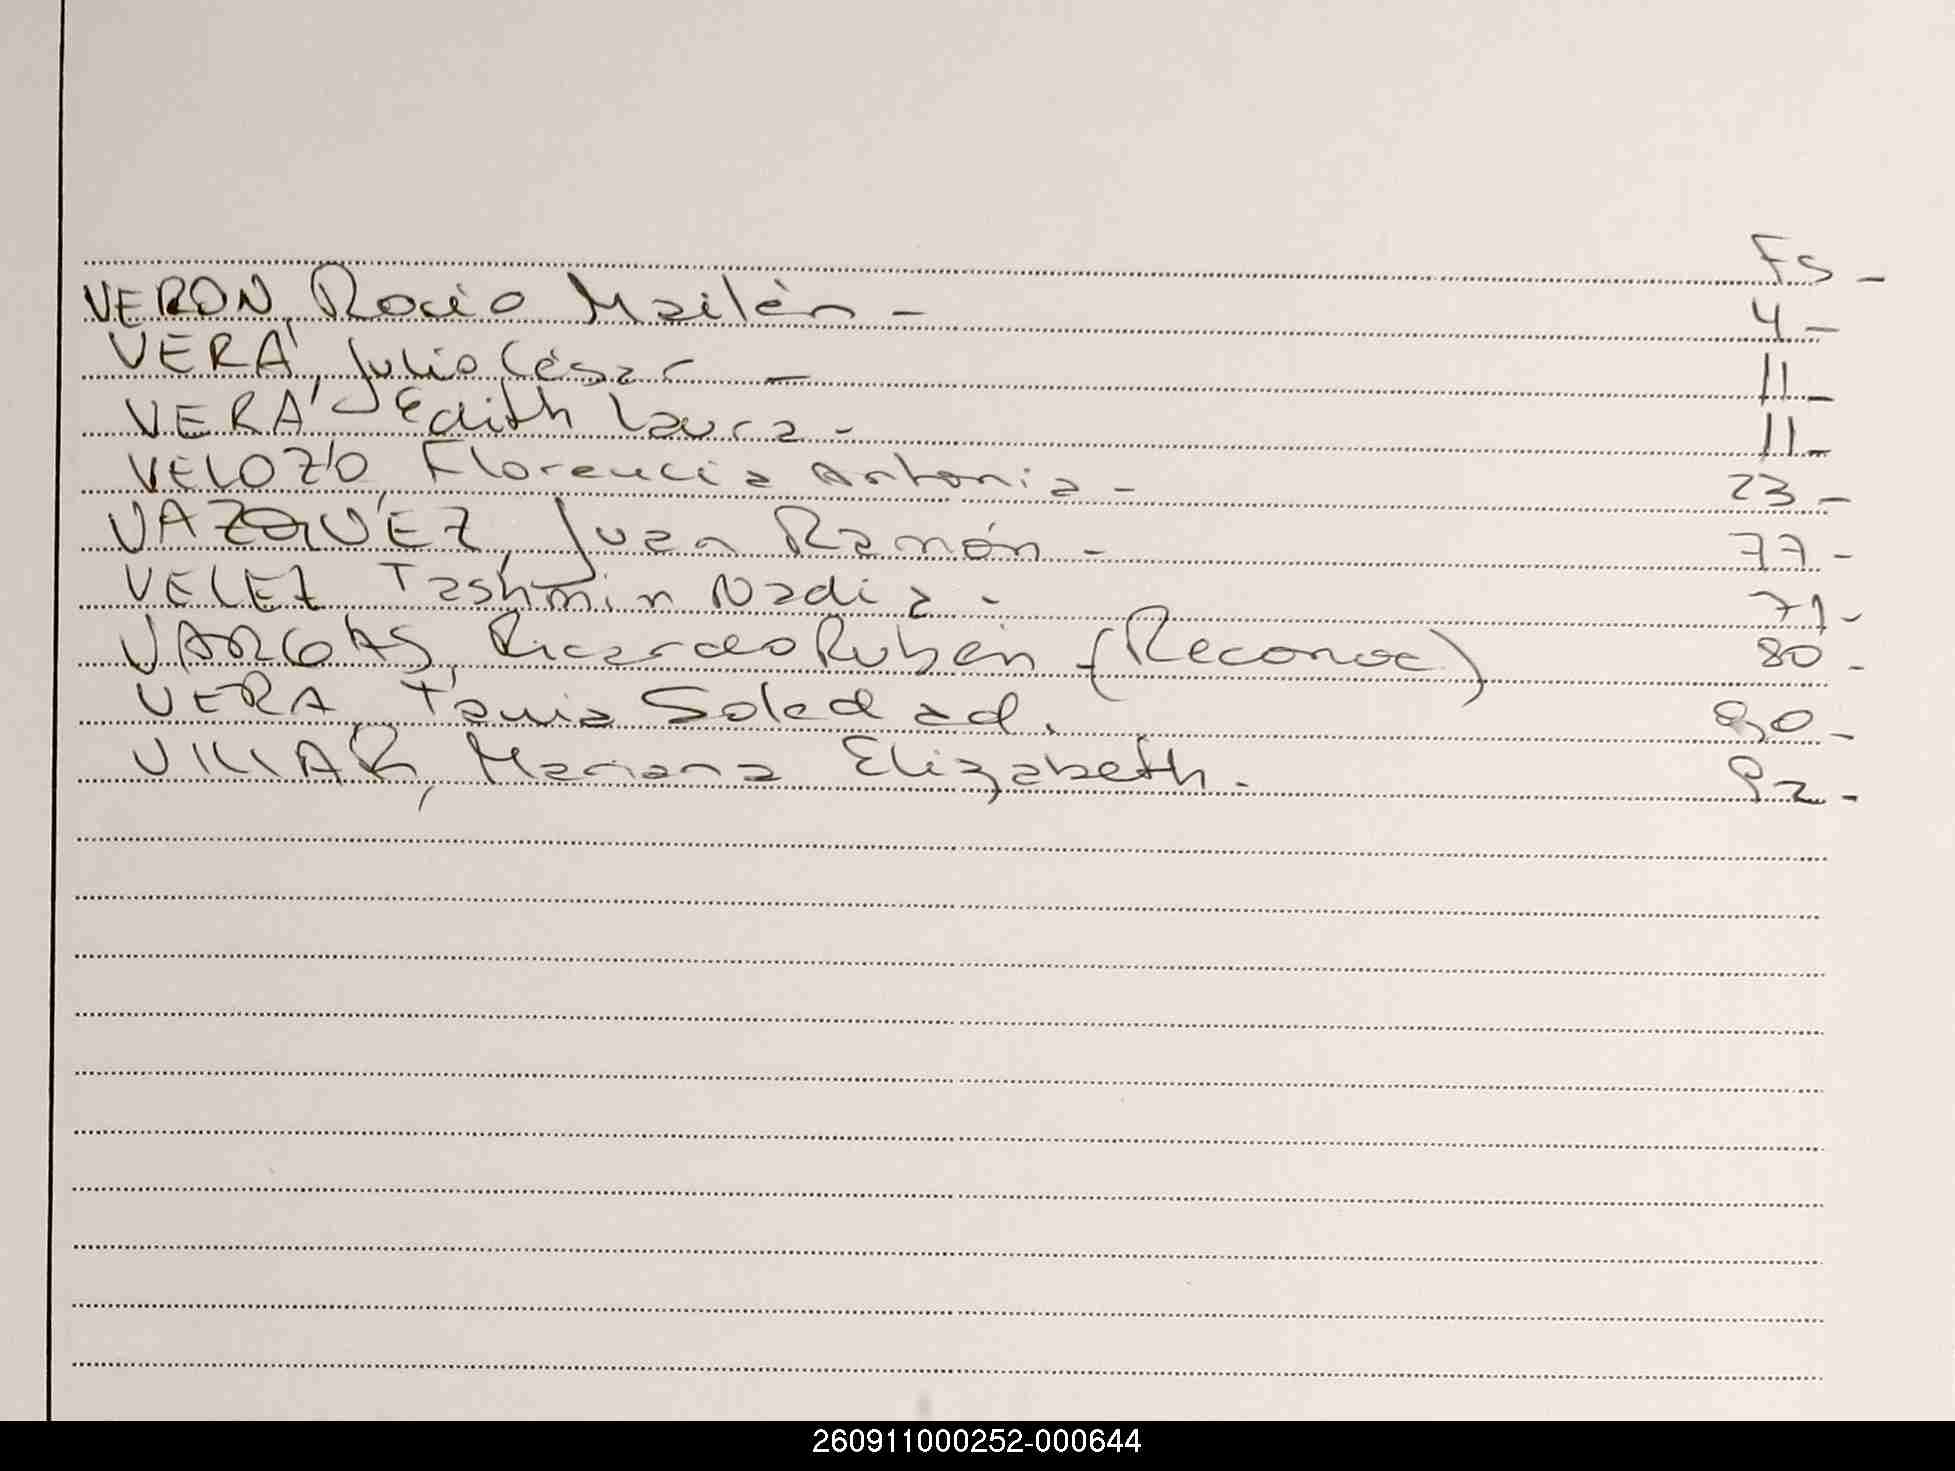 Fs -
VERON, Rocio Mailén - 4 -
VERA, Julio César - 11 -
VERA Edith Laura - 11 -
VELOZO, Florencia Antonia - 23 -
VAZQUEZ, Juan Ramón - 77 -
VELEZ Tashmin Nadia - 71 -
VARGAS, Ricardo Rubén - (Reconoc) 80 -
VERA, Tania Soledad. 90 -
VILLAR, Mariana Elizabeth. 92 -
260911000252-000644